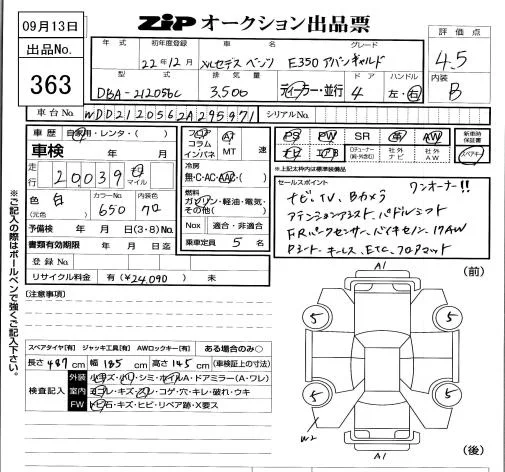 09月13日
出品No.
363
ZIP オークション出品票
評価点
4.5
内装
B
年式 初年度登録 車名 グレード
22年12月 メルセデス ベンツ E350 アバンギャルド
型式 排気量 ドア ハンドル
DBA-212056C 3,500 ディーラー・並行 4 左・右
車台No. WDD2120562A295971 シリアルNo.
車歴 自家用・レンタ・( )
車検 年 月
走行 20,039 km マイル
色 白 カラーNo. 650 内装色
(元色)
予備検 年 月 日(3・8)Mo.
書類有効期限 年 月 日迄
登録No.
リサイクル料金 有(¥24,090) 無
フロア AT
コラム
インパネ MT 速
冷房
無・C・AC・AAC・( )
燃料
ガソリン・軽油・電気・
その他( )
Nox 適合・非適合
乗車定員 5 名
PS PW SR 革 AW
Dチューナー 社外ナビ 社外AW
新車時保証書
スペアキー
※上記太枠内は標準装備品
セールスポイント ワンオーナー!!
ナビ、TV、Bカメラ
アテンションアシスト、パドルシフト
F.Rパークセンサー、バイキセノン、17AW
Pシート、キーレス、ETC、フロアマット
※ご記入の際はボールペンで強くご記入下さい。
[注意事項]
スペアタイヤ[有] ジャッキ工具[有] AWロックキー[有] ある場合のみ○
長さ 487 cm 幅 185 cm 高さ 145 cm (車検証上の寸法)
検査記入
外装 小キズ・小凹・シミ・ホイルA・ドアミラー(A・ワレ)
室内 ヨゴレ・キズ・スレ・コゲ・穴・キレ・破れ・ウキ
FW トビ石・キズ・ヒビ・リペア跡・X要ス
A1
(前)
5 5
5 5
W2
A1
(後)